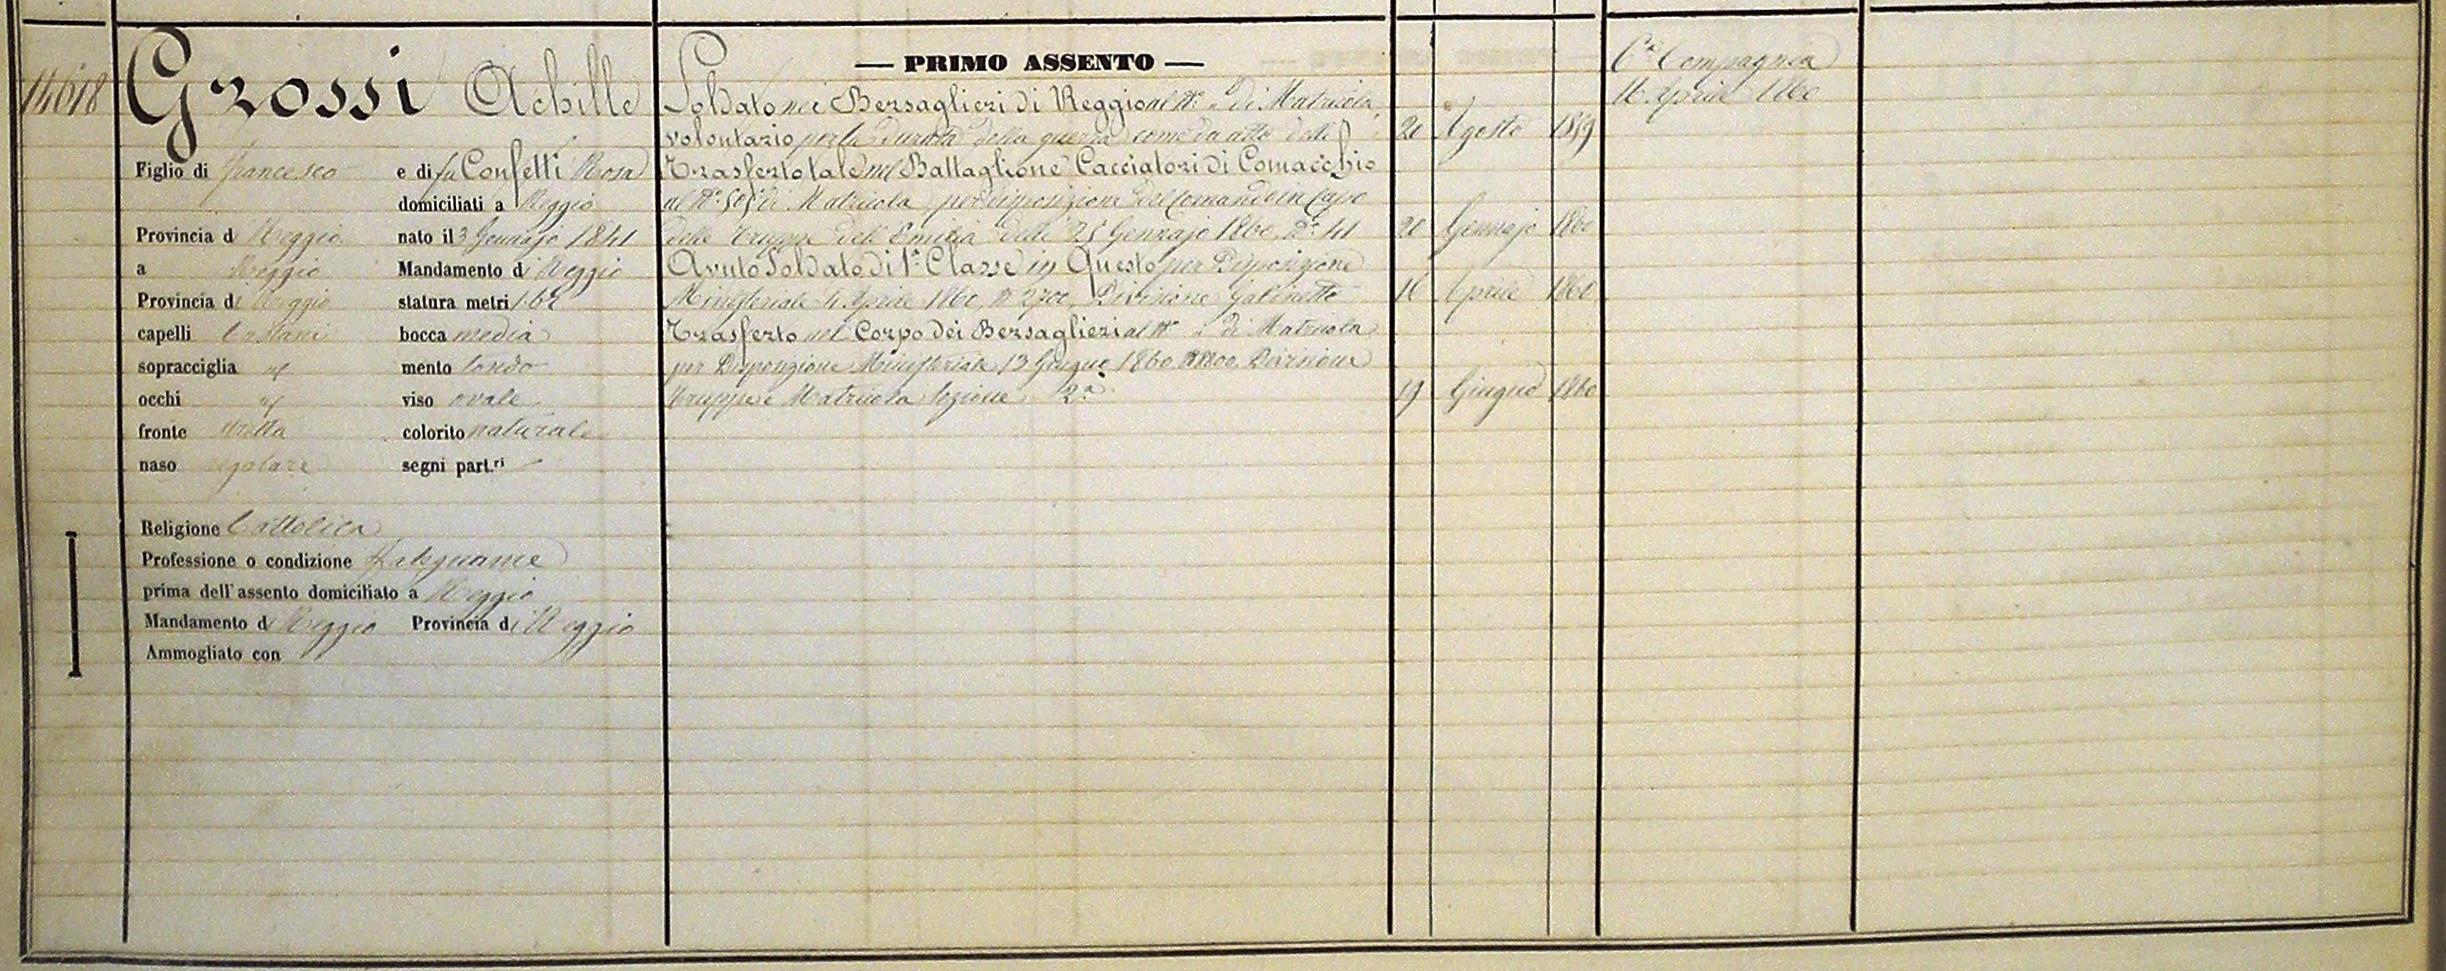 14618
Grossi Achille
Figlio di Francesco e di fu Confetti Rosa
domiciliati a Reggio
Provincia di Reggio nato il 3 Gennajo 1841
a Reggio Mandamento di Reggio
Provincia di Reggio statura metri 1.62
capelli Castani bocca media
sopracciglia id mento tondo
occhi id viso ovale
fronte stretta colorito naturale
naso regolare segni part.ri
Religione Cattolica
Professione o condizione Falegname
prima dell'assento domiciliato a Reggio
Mandamento di Reggio Provincia di Reggio
Ammogliato con
— PRIMO ASSENTO —
Soldato nei Bersaglieri di Reggio al N° " di Matricola
volontario per la durata della guerra come da atto delli 20 Agosto 1859
Trasferto tale nel Battaglione Cacciatori di Comacchio
al N° 505 di Matricola per disposizione del Comando in Capo
delle Truppe dell'Emilia delli 25 Gennajo 1860 N° 41 20 Gennajo 1860
Avuto Soldato di 1a Classe in Questo per Disposizione
Ministeriale 4 Aprile 1860, N° 2700, Divisione Gabinetto 16 Aprile 1860
Trasferto nel Corpo dei Bersaglieri al N° " di Matricola
per Disposizione Ministeriale 13 Giugno 1860 Divisione
Truppe e Matricola Sezione 2a 19 Giugno 1860
6a Compagnia
16 Aprile 1860